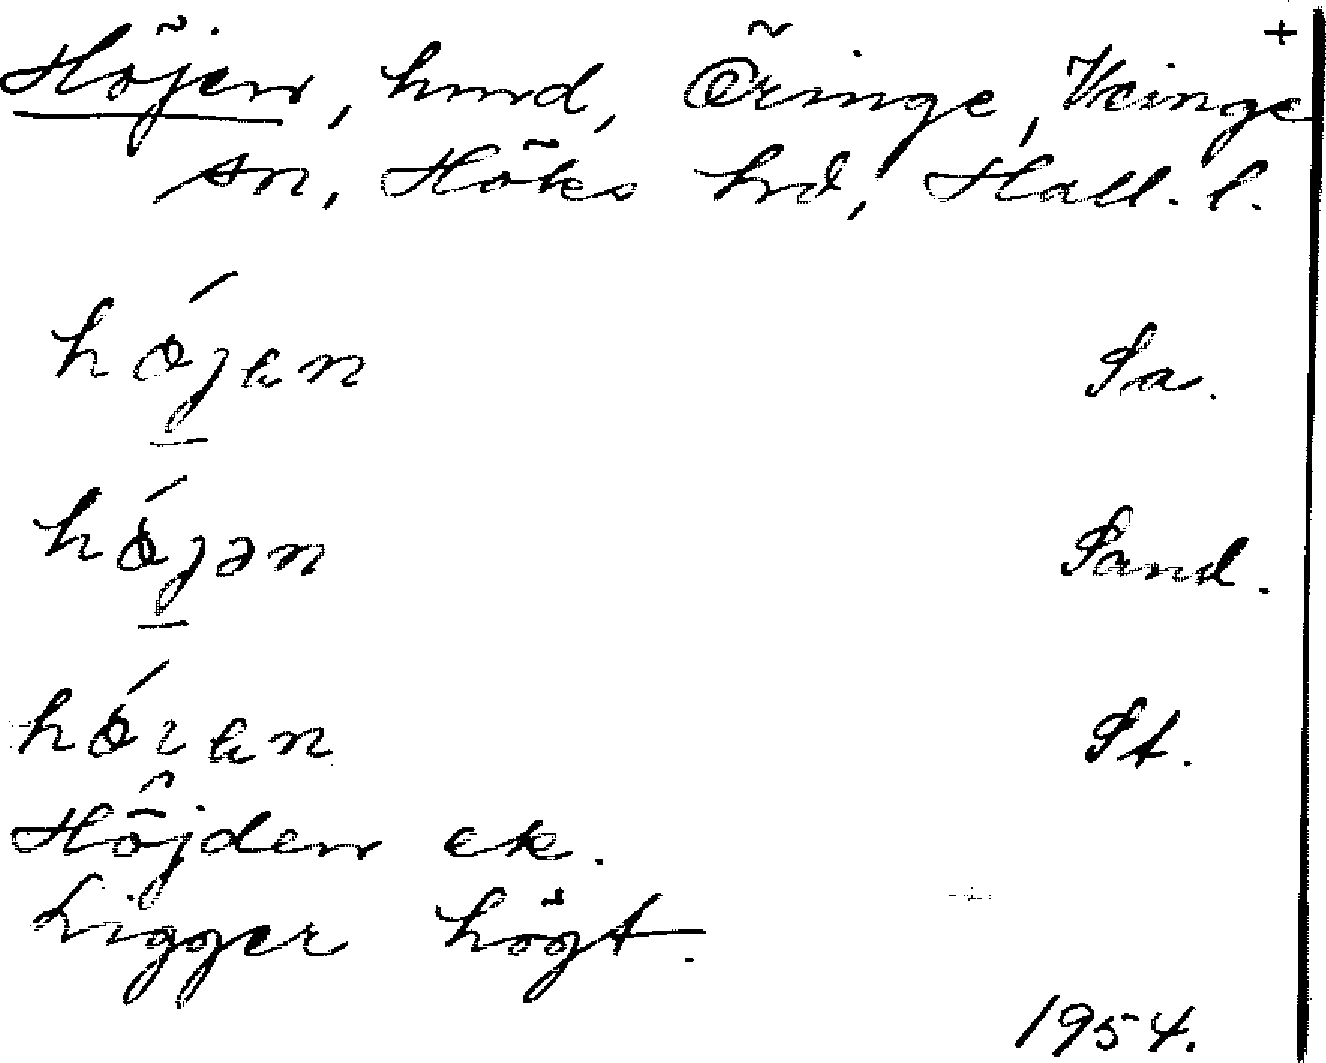 +
Höjen, hmd, Öringe, Veinge
sn, Höks hrd, Hall. l.
hǿjen Sa.
hǿjən Sand.
hǿıen St.
Höjden ek.
Ligger högt.
1954.